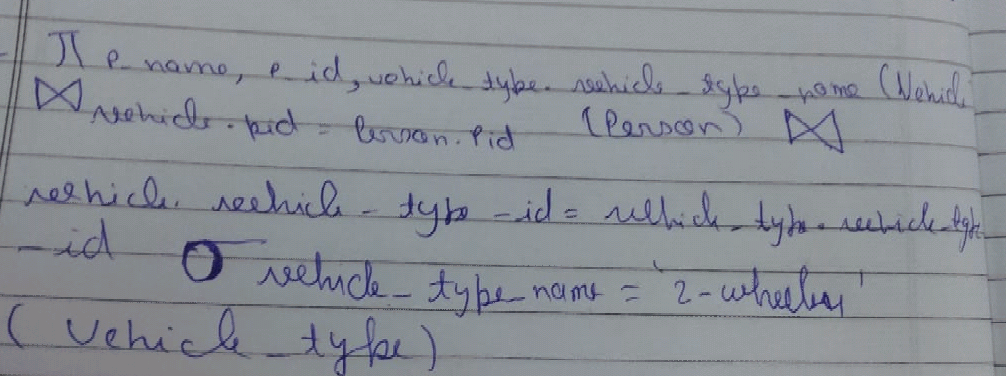 π p_name, p_id, vehicle_type. vehicle_type_name (Vehicl
⋈ vehicle.pid = Person.Pid (Person) ⋈
vehicle. vehicle_type_id = vehicle_type.vehicle_type
_id σ vehicle_type_name = '2-wheeler'
(Vehicle_type)